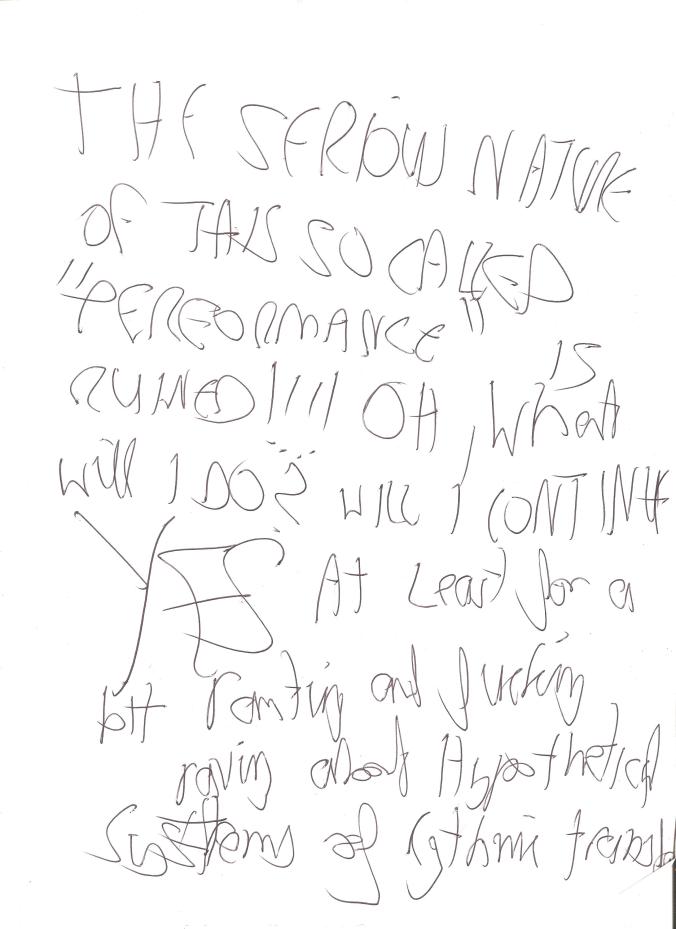 THE SERIOUS NATURE
OF THIS SO CALLED
"PERFORMANCE"
IS
RUINED!!!! OH, what
will I DO? WILL I CONTINUE
YES At Least for a
bit ranting and fucking
raving about Hypothetical
Systems of rythmic